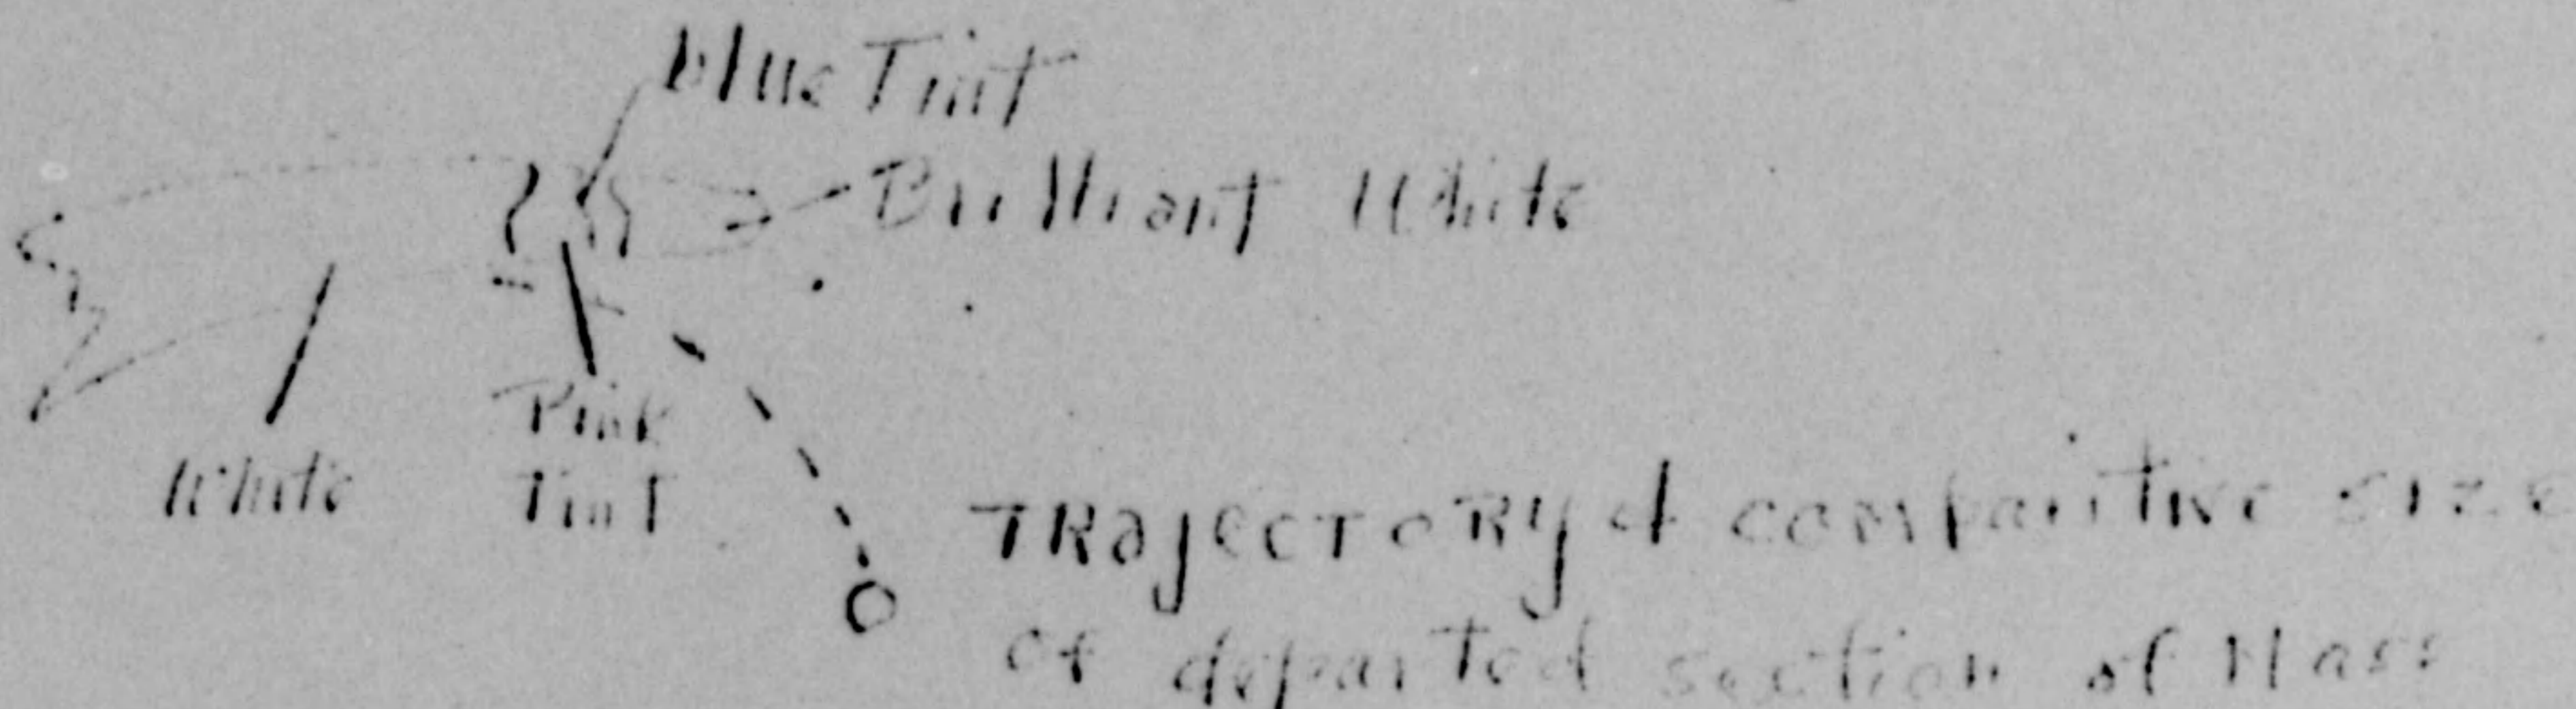 Blue Tint
Brilliant White
Pink
White Tint
TRAJECTORY & comparitive size
of departed section of Mass